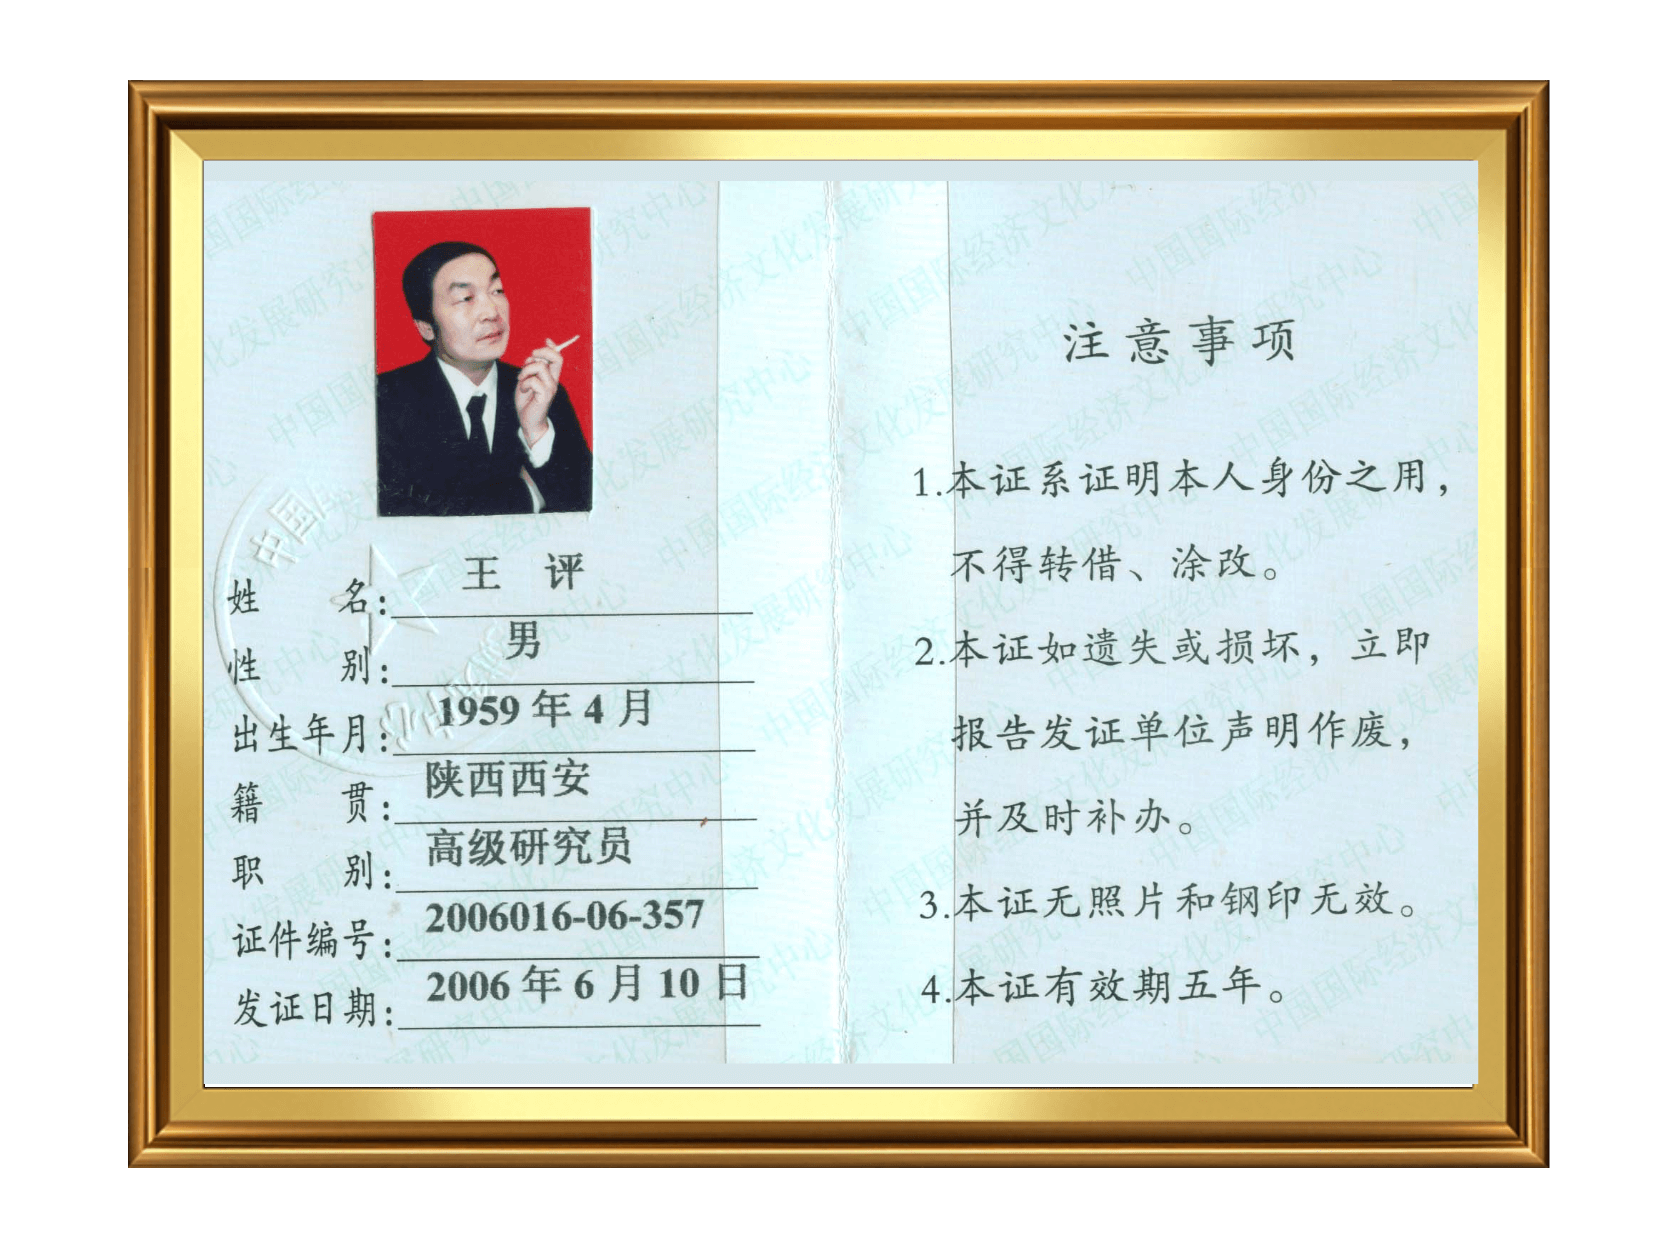 王 评
姓 名:
男
性 别:
1959 年 4 月
出生年月:
陕西西安
籍 贯:
高级研究员
职 别:
2006016-06-357
证件编号:
2006 年 6 月 10 日
发证日期:
注意事项
1.本证系证明本人身份之用，
不得转借、涂改。
2.本证如遗失或损坏，立即
报告发证单位声明作废，
并及时补办。
3.本证无照片和钢印无效。
4.本证有效期五年。
中国国际经济文化发展研究中心